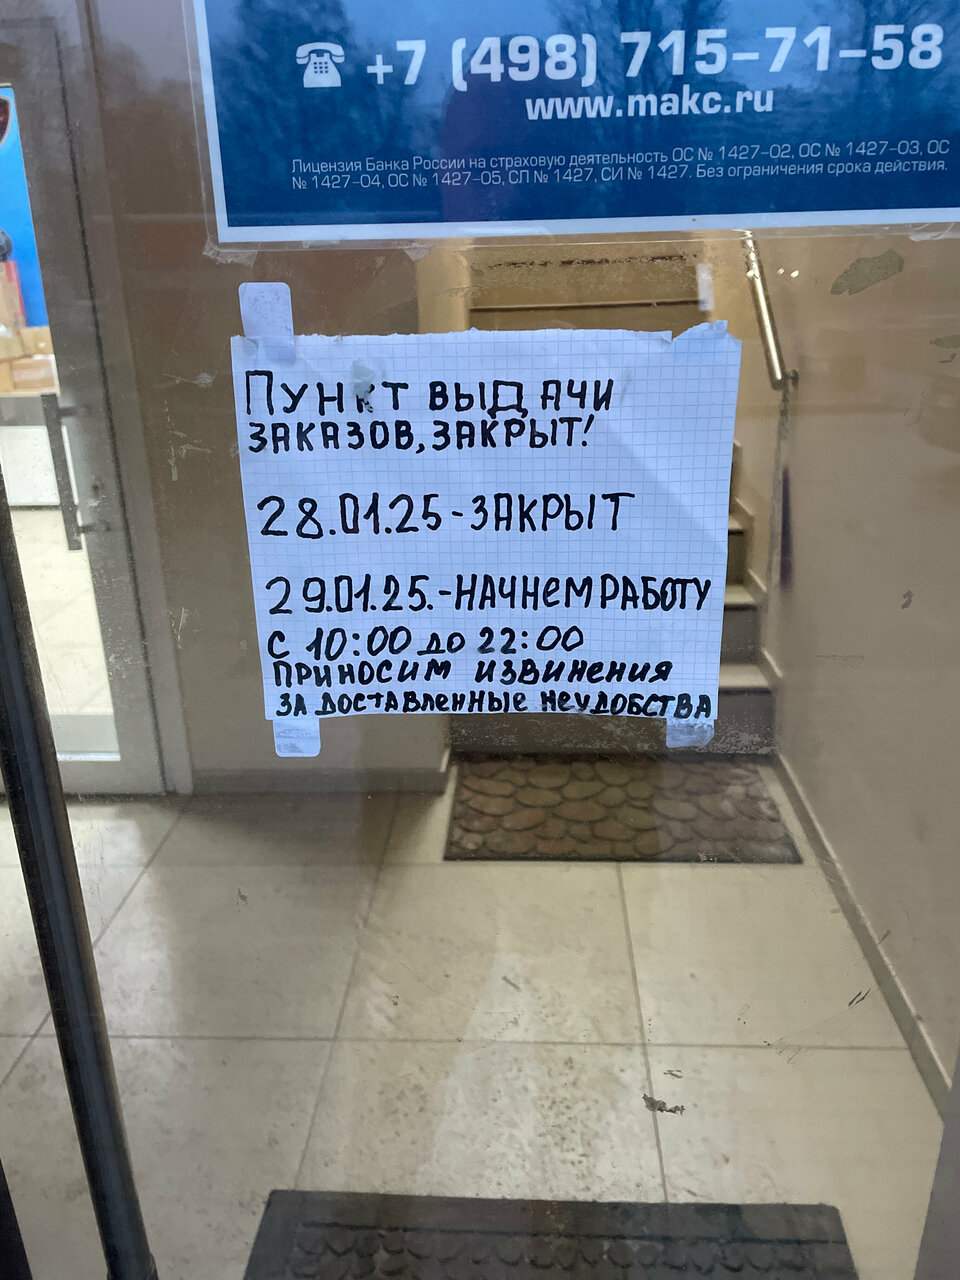 +7 (498) 715-71-58
www.makc.ru
Лицензия Банка России на страховую деятельность ОС № 1427-02, ОС № 1427-03, ОС
№ 1427-04, ОС № 1427-05, СЛ № 1427, СИ № 1427. Без ограничения срока действия.
ПУНКТ ВЫДАЧИ
ЗАКАЗОВ, ЗАКРЫТ!
28.01.25-ЗАКРЫТ
29.01.25.-НАЧНеМ РАБОТУ
С 10:00 до 22:00
ПРИНОСИМ ИЗВИНЕНИЯ
ЗА ДОСТАВЛеННЫе НеУДОБСТВА